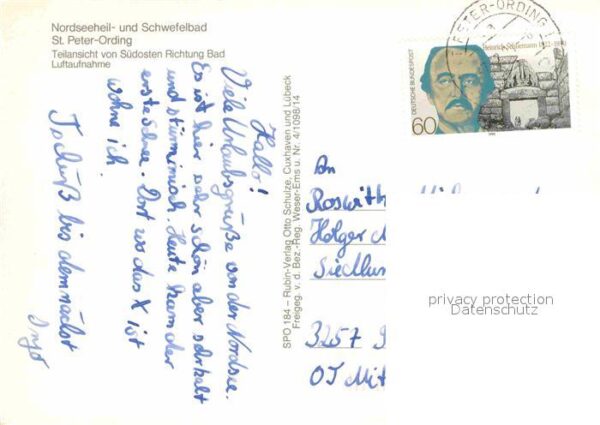 Nordseeheil- und Schwefelbad
St. Peter-Ording
Teilansicht von Südosten Richtung Bad
Luftaufnahme
Hallo!
Viele Urlaubsgrüße von der Nordsee.
Es ist hier sehr schön aber sehr kalt
und stürmisch. Heute kam der
erste Schnee. Dort wo das X ist
wohne ich.
Tschüß bis demnächst
Ingo
SPO 184 – Rubin-Verlag Otto Schulze, Cuxhaven und Lübeck
Freigeg. v. d. Bez.-Reg. Weser-Ems u. Nr. 4/1098/14
PETER-ORDING 1
Heinrich Schliemann 1822-1890
DEUTSCHE BUNDESPOST
60
1990
An
Holger
3257
OT
privacy protection
Datenschutz